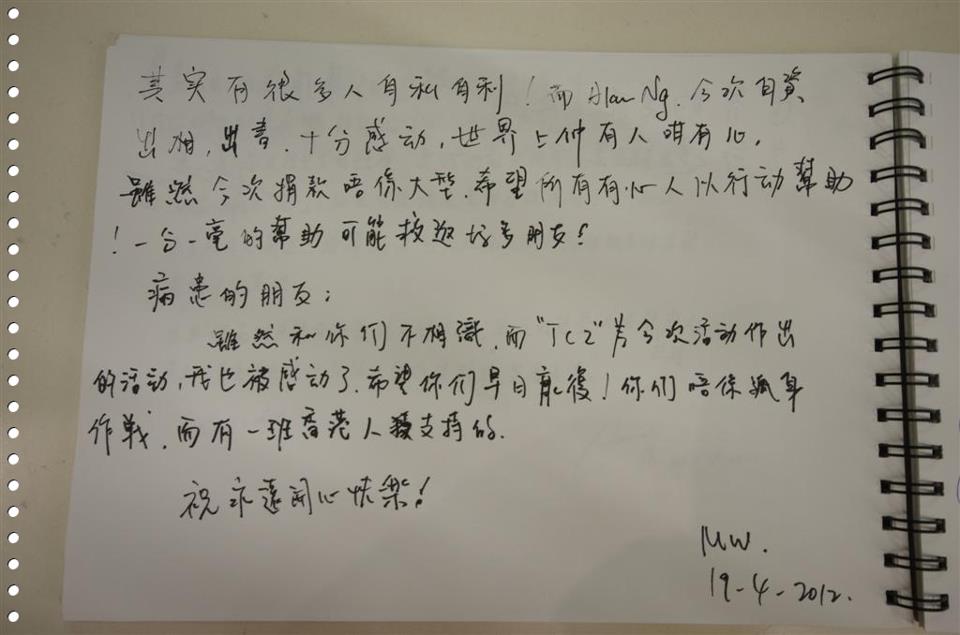 其实有很多人自私自利！而Alan Ng.今次自資
出相，出書.十分感动，世界上仲有人咁有心，
雖然今次捐款唔係大型.希望所有有心人以行动幫助
！一分一毫的幫助可能救返好多朋友！
病患的朋友：
雖然和你们不相識，而"TC2"為今次活动作出
的活动，我也被感动了.希望你们早日康復！你们唔係孤身
作戰，而有一班香港人支持的.
祝永遠開心快樂！
MW.
19-4-2012.